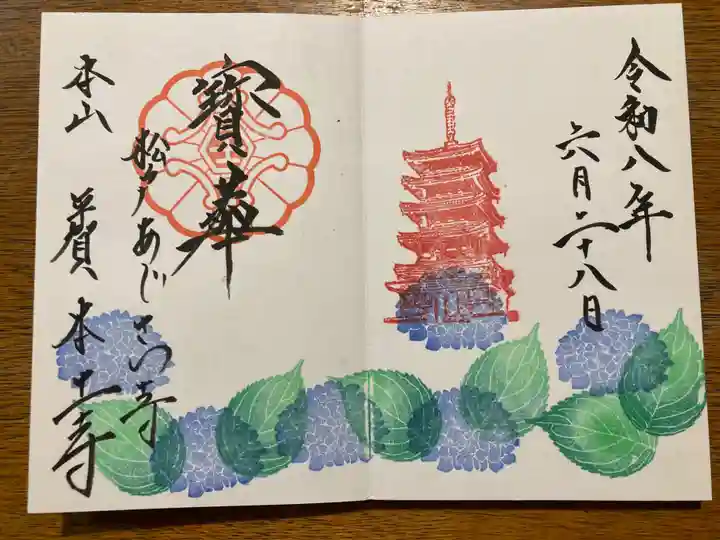 令和八年
六月二十八日
寶華
松戸あじさい寺
本山 本土寺